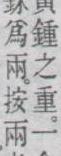 黃鍾之重。一
銖爲兩。按兩